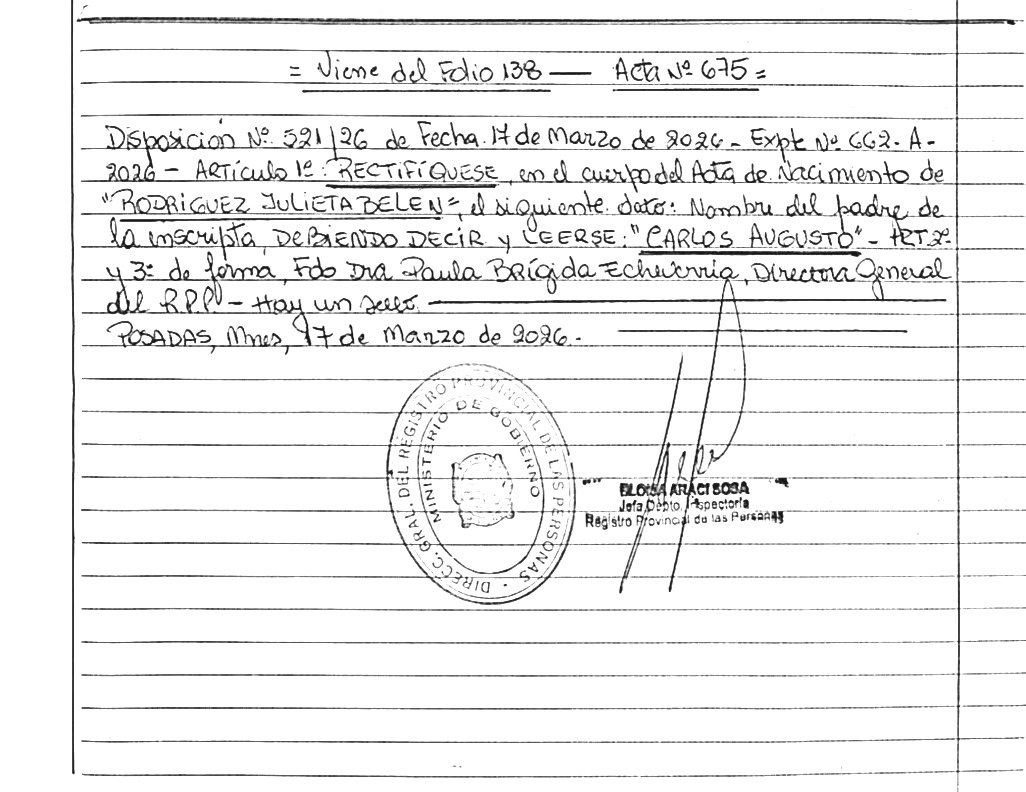 = Viene del Folio 138 — Acta Nº 675 =
Disposición Nº 521/26 de Fecha. 17 de Marzo de 2026 - Expte Nº 662- A-
2026 - ARTículo 1º: RECTIFÍQUESE, en el cuerpo del Acta de Nacimiento de
"RODRIGUEZ JULIETA BELEN", el siguiente dato: Nombre del padre de
la inscripta, DEBIENDO DECIR y LEERSE: "CARLOS AUGUSTO" - ART. 2º
y 3º de forma, Fdo Dra Paula BRígida Echeverria, Directora General
del R.P.P - Hay un sello.
POSADAS, Mnes, 17 de Marzo de 2026.-
DIRECC. GRAL. DEL REGISTRO PROVINCIAL DE LAS PERSONAS -
MINISTERIO DE GOBIERNO
ELOISA ARACI SOSA
Jefa Depto. Inspectoría
Registro Provincial de las Personas